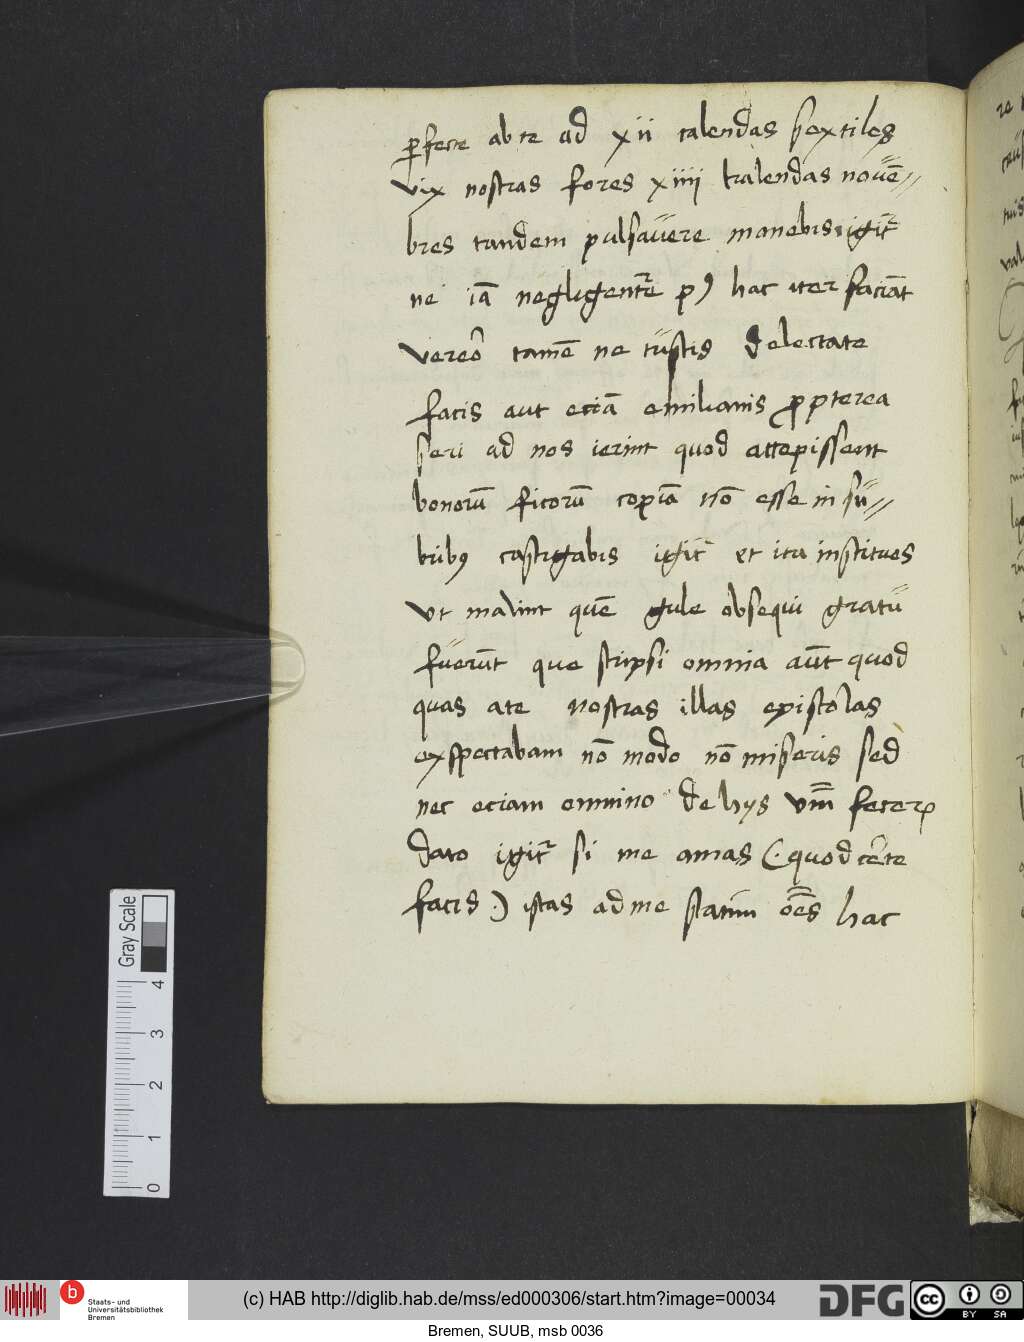 ꝑfecte ab te ad xii calendas sextiles
vix nostras fores xiiii kalendas nouē//
bres tandem pulsauere manebis igit᷑
ne iā negligent᷑e pꝰ hac iter faciāt
vereō tamē ne tustis delectate
facis aut eciā emilianis ꝓpterea
seri ad nos ierint quod accepissent
bonorū ficorū copiā nō esse in su//
bribꝰ castigabis igit᷑ et ita institues
vt malint quē gule obsequi gratū
fuerūt que scripsi omnia aūt quod
quas a te nostras illas epistolas
exspectabam nō modo nō miseris sed
nec eciam omnino de hys vm̄ fecer
dato igit᷑ si me amas (. quod certe
facis .) istas ad me statim oēs hac
Gray Scale
4
3
2
1
0
b Staats- und
Universitätsbibliothek
Bremen
(c) HAB http://diglib.hab.de/mss/ed000306/start.htm?image=00034
DFG
cc BY SA
Bremen, SUUB, msb 0036